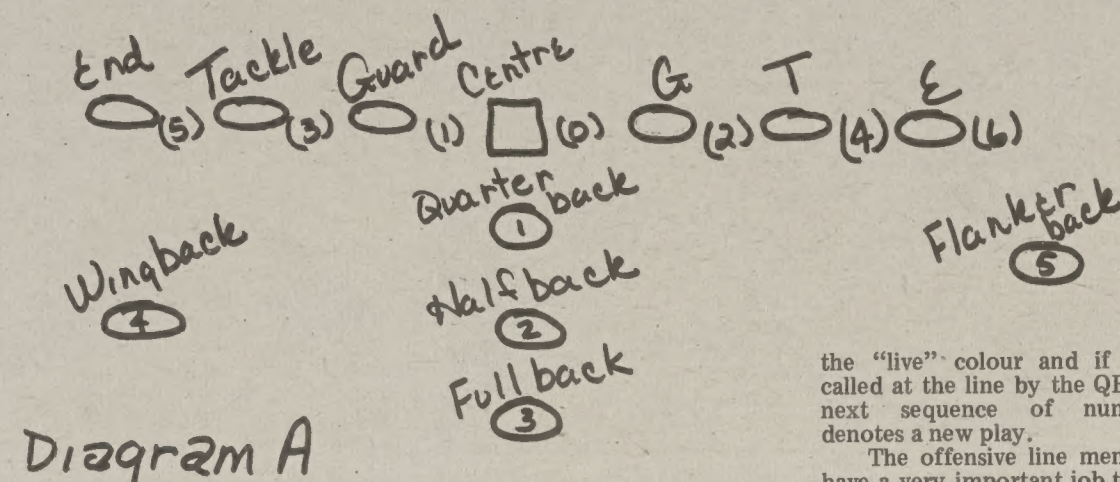 End Tackle Guard Centre G T E
(5) (3) (1) (0) (2) (4) (6)
Quarter back
1
Flanker back
5
Wingback
4
Halfback
2
Fullback
3
Diagram A
the "live" colour and if
called at the line by the
next sequence of
denotes a new play.
The offensive line
have a very important job